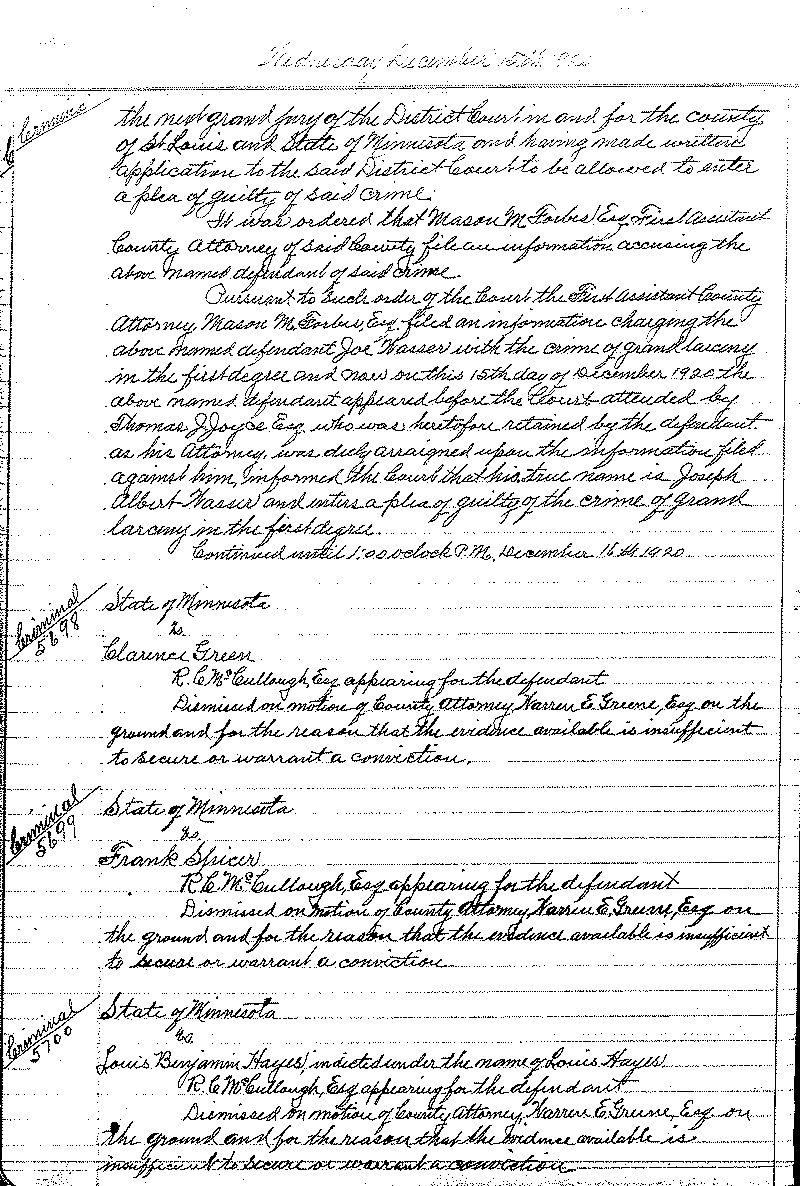 Wednesday December 15th 1920
Criminal
the next grand jury of the District Court in and for the county
of St. Louis and State of Minnesota and having made written
application to the said District Court to be allowed to enter
a plea of guilty of said crime.
It was ordered that Mason M. Forbes, Esq. First Assistant
County Attorney of said County file an information accusing the
above named defendant of said crime.
Pursuant to such order of the Court the First Assistant County
Attorney, Mason M. Forbes, Esq. filed an information charging the
above named defendant Joe Wasser with the crime of grand larceny
in the first degree and now on this 15th day of December 1920 the
above named defendant appeared before the Court attended by
Thomas J. Joyce Esq. who was heretofore retained by the defendant
as his Attorney, was duly arraigned upon the information filed
against him, informed the Court that his true name is Joseph
Albert Wasser and enters a plea of guilty of the crime of grand
larceny in the first degree.
Continued until 1:00 o'clock P.M. December 16th 1920
Criminal
5698
State of Minnesota
vs.
Clarence Green
R.C. McCullough, Esq. appearing for the defendant
Dismissed on motion of County Attorney, Warren E. Greene, Esq. on the
ground and for the reason that the evidence available is insufficient
to secure or warrant a conviction.
Criminal
5699
State of Minnesota
vs.
Frank Spicer
R.C. McCullough, Esq. appearing for the defendant
Dismissed on motion of County Attorney, Warren E. Greene, Esq. on
the ground and for the reason that the evidence available is insufficient
to secure or warrant a conviction
Criminal
5700
State of Minnesota
vs.
Louis Benjamin Hayes, indicted under the name of Louis Hayes.
R.C. McCullough, Esq. appearing for the defendant
Dismissed on motion of County Attorney, Warren E. Greene, Esq. on
the ground and for the reason that the evidence available is
insufficient to secure or warrant a conviction